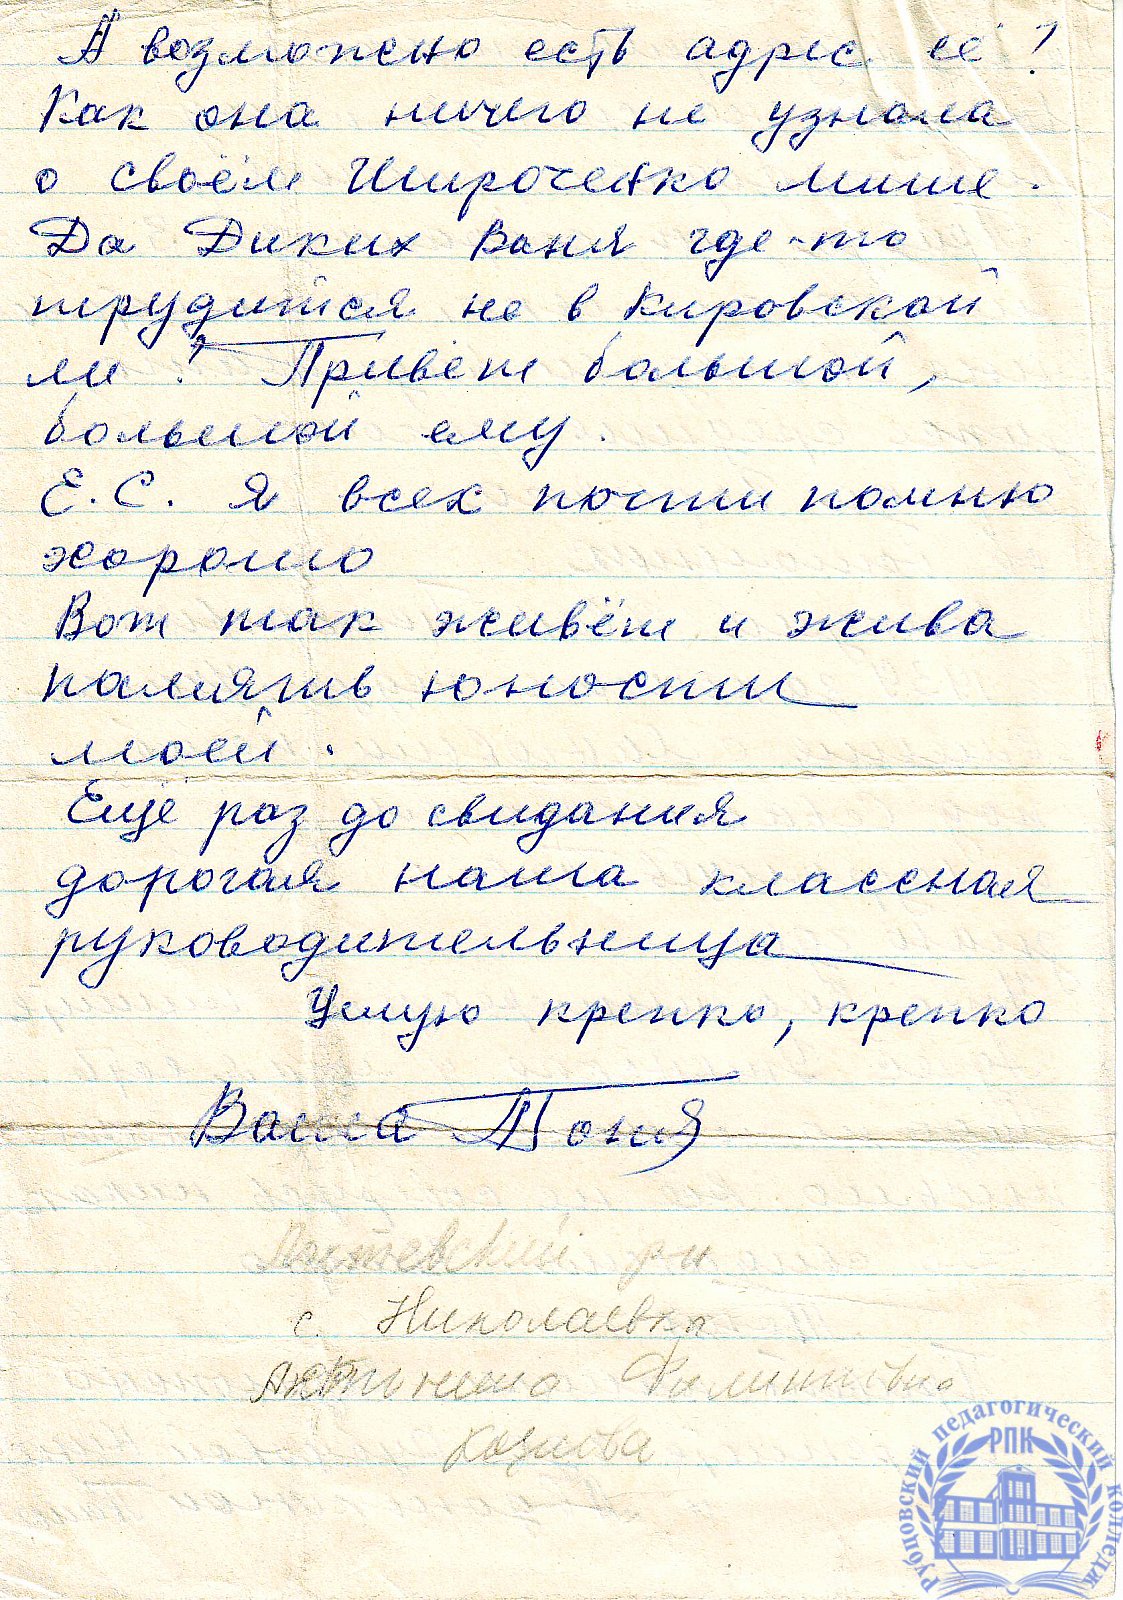 А возможно есть адрес её?
Как она ничего не узнала
о своём Широченко Мише.
Да Диких Ваня где-то
трудится не в Кировской
ли? Привет большой,
большой ему.
Е.С. Я всех почти помню
хорошо
Вот так живёт и жива
память юности
моей.
Ещё раз до свидания
дорогая наша классная
руководительница
Целую крепко, крепко
Ваша Тоня
р-н
с. Николаевка
Козлова
Рубцовский педагогический колледж
РПК